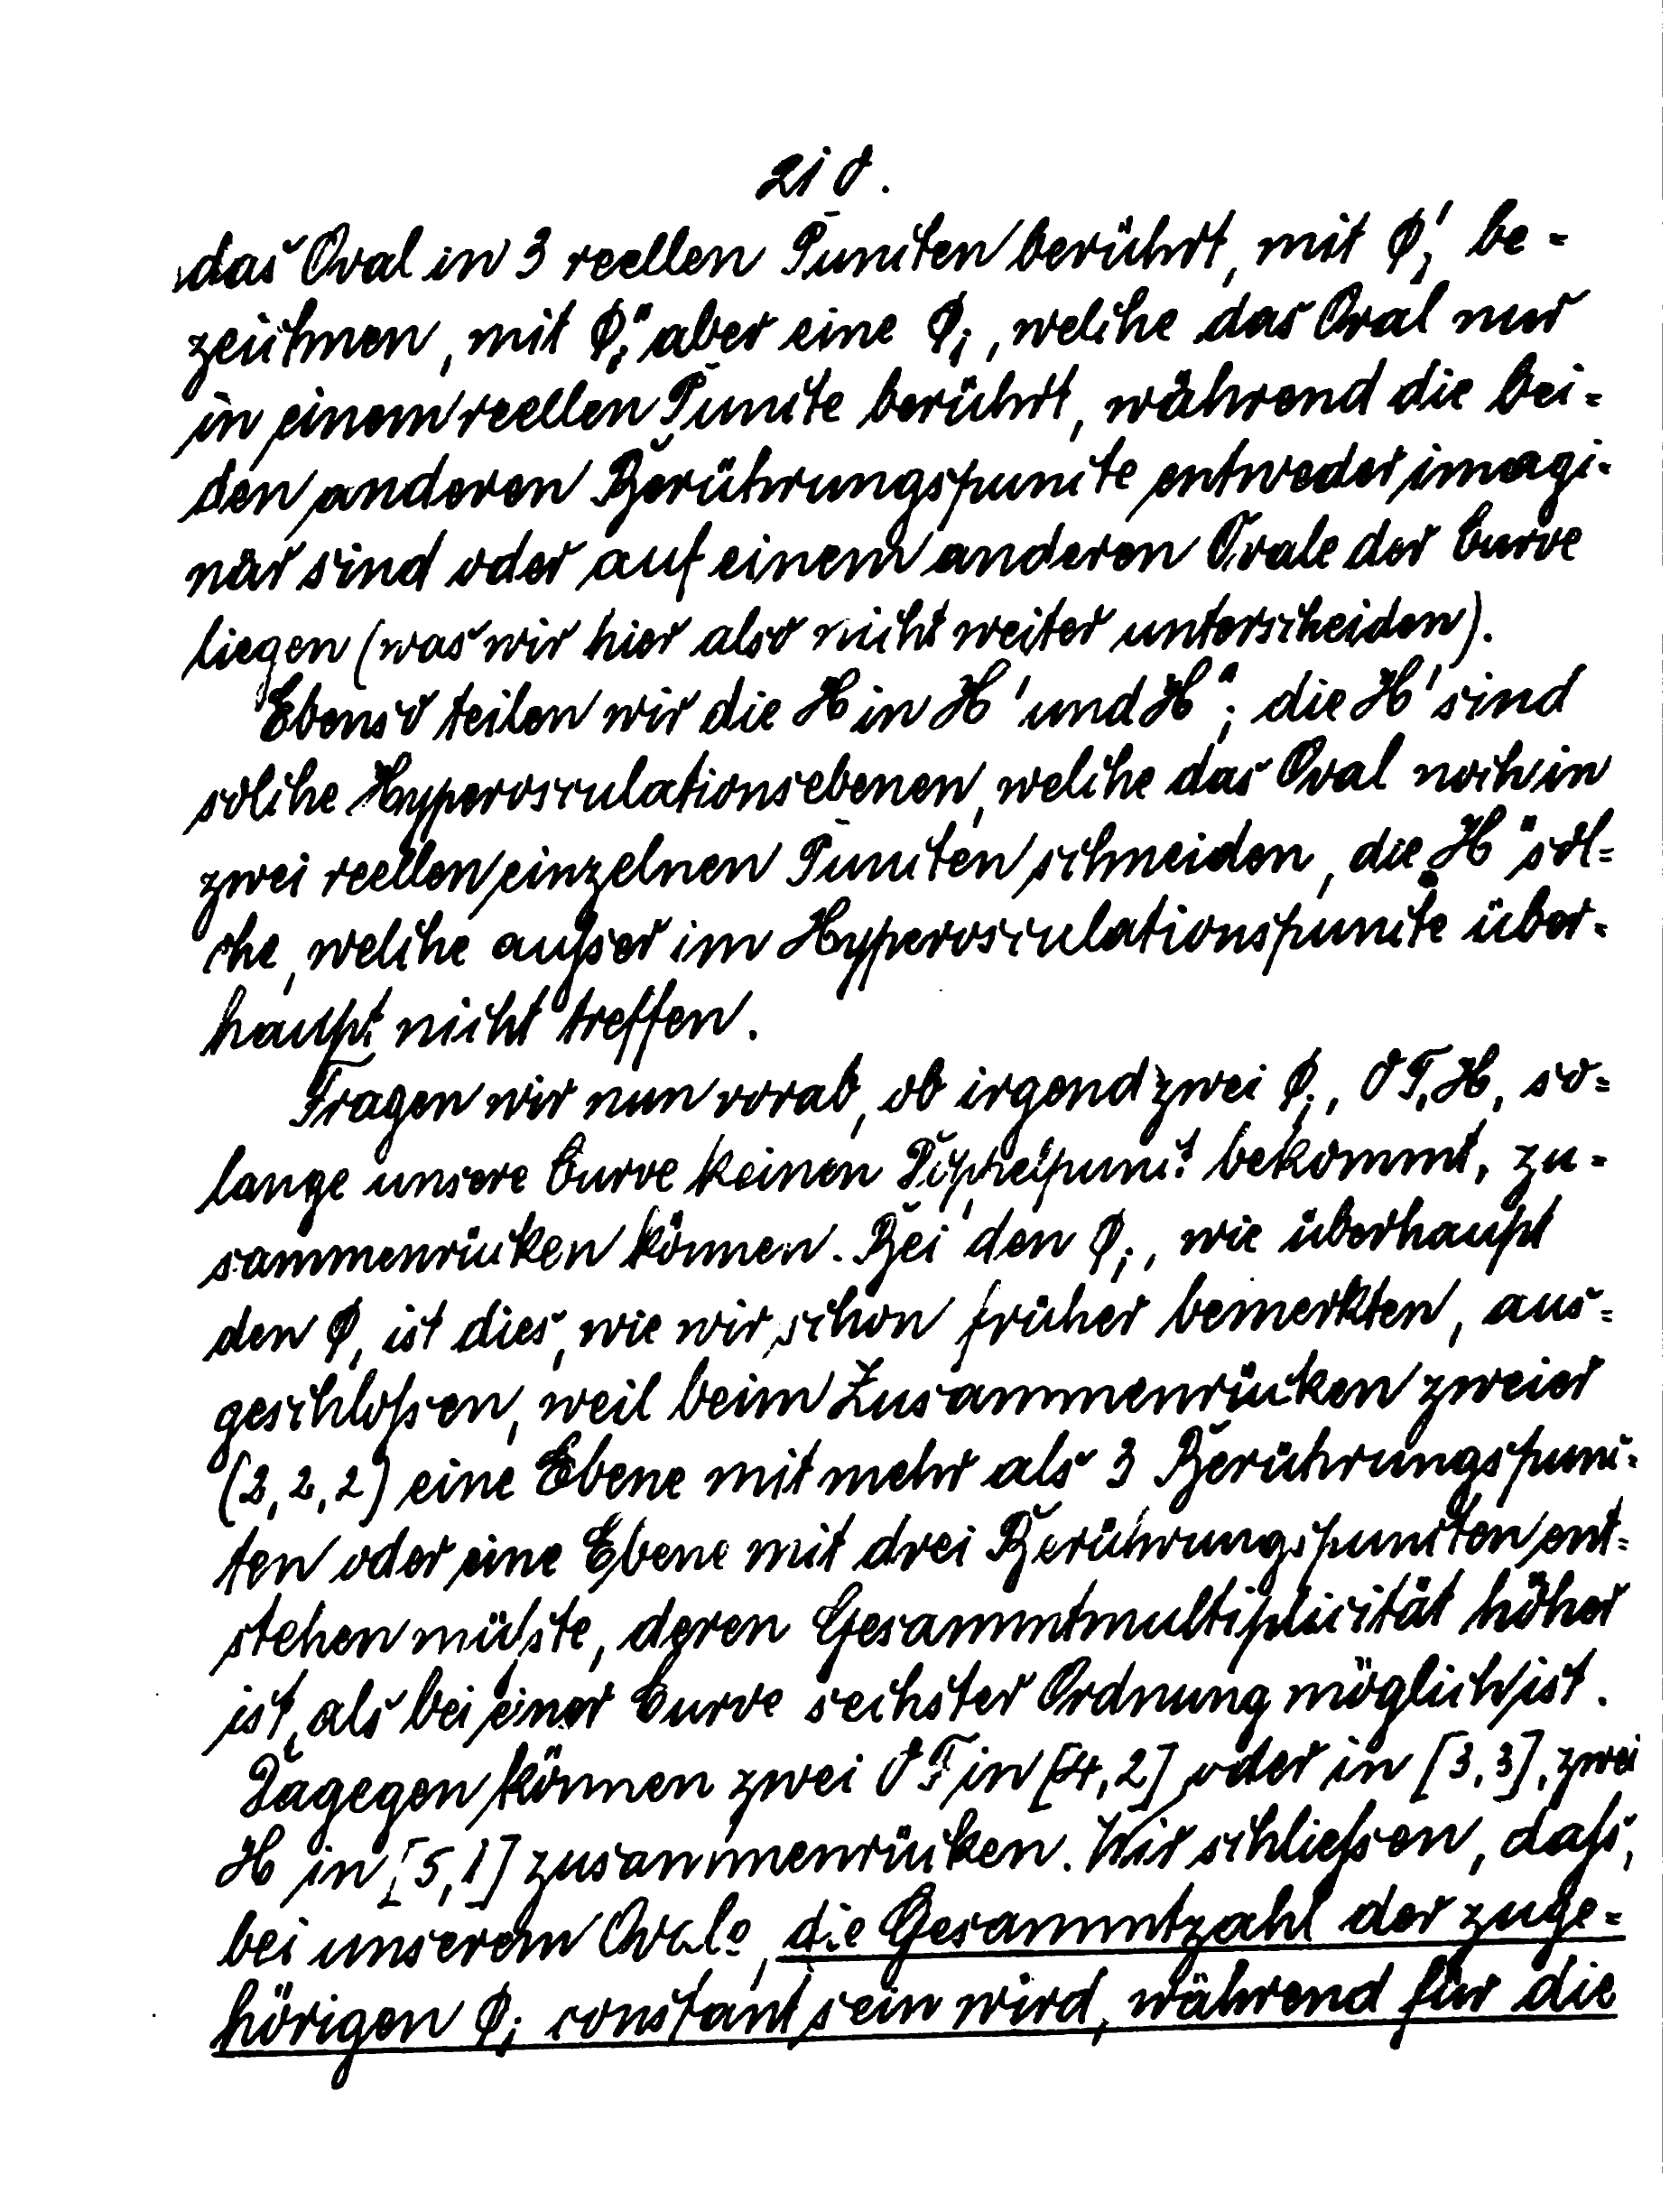 210.
das Oval in 3 reellen Puncten berührt, mit Φ¡' be-
zeichnen, mit Φ¡" aber eine Φ¡, welche das Oval nur
in einem reellen Puncte berührt, während die bei-
den anderen Berührungspuncte entweder imagi-
när sind oder auf einem anderen Ovale der Curve
liegen (was wir hier also nicht weiter unterscheiden).
Ebenso teilen wir die H in H' und H"; die H' sind
solche Hyperosculationsebenen, welche das Oval noch in
zwei reellen einzelnen Puncten schneiden, die H" sol-
che, welche außer im Hyperosculationspuncte über-
haupt nicht treffen.
Fragen wir nun vorab, ob irgend zwei Φ¡, OT, H, so-
lange unsere Curve keinen Doppelpunct bekommt, zu-
sammenrücken können. Bei den Φ¡, wie überhaupt
den Φ, ist dies, wie wir schon früher bemerkten, aus-
geschloßen, weil beim Zusammenrücken zweier
(2,2,2) eine Ebene mit mehr als 3 Berührungspunc-
ten oder eine Ebene mit drei Berührungspuncten ent-
stehen müßte, deren Gesammtmultiplicität höher
ist, als bei einer Curve sechster Ordnung möglich ist.
Dagegen können zwei OT in [4,2] oder in [3,3], zwei
H in [5,1] zusammenrücken. Wir schließen, daß,
bei unserem Ovale, die Gesammtzahl der zuge-
hörigen Φ¡ constant sein wird, während für die